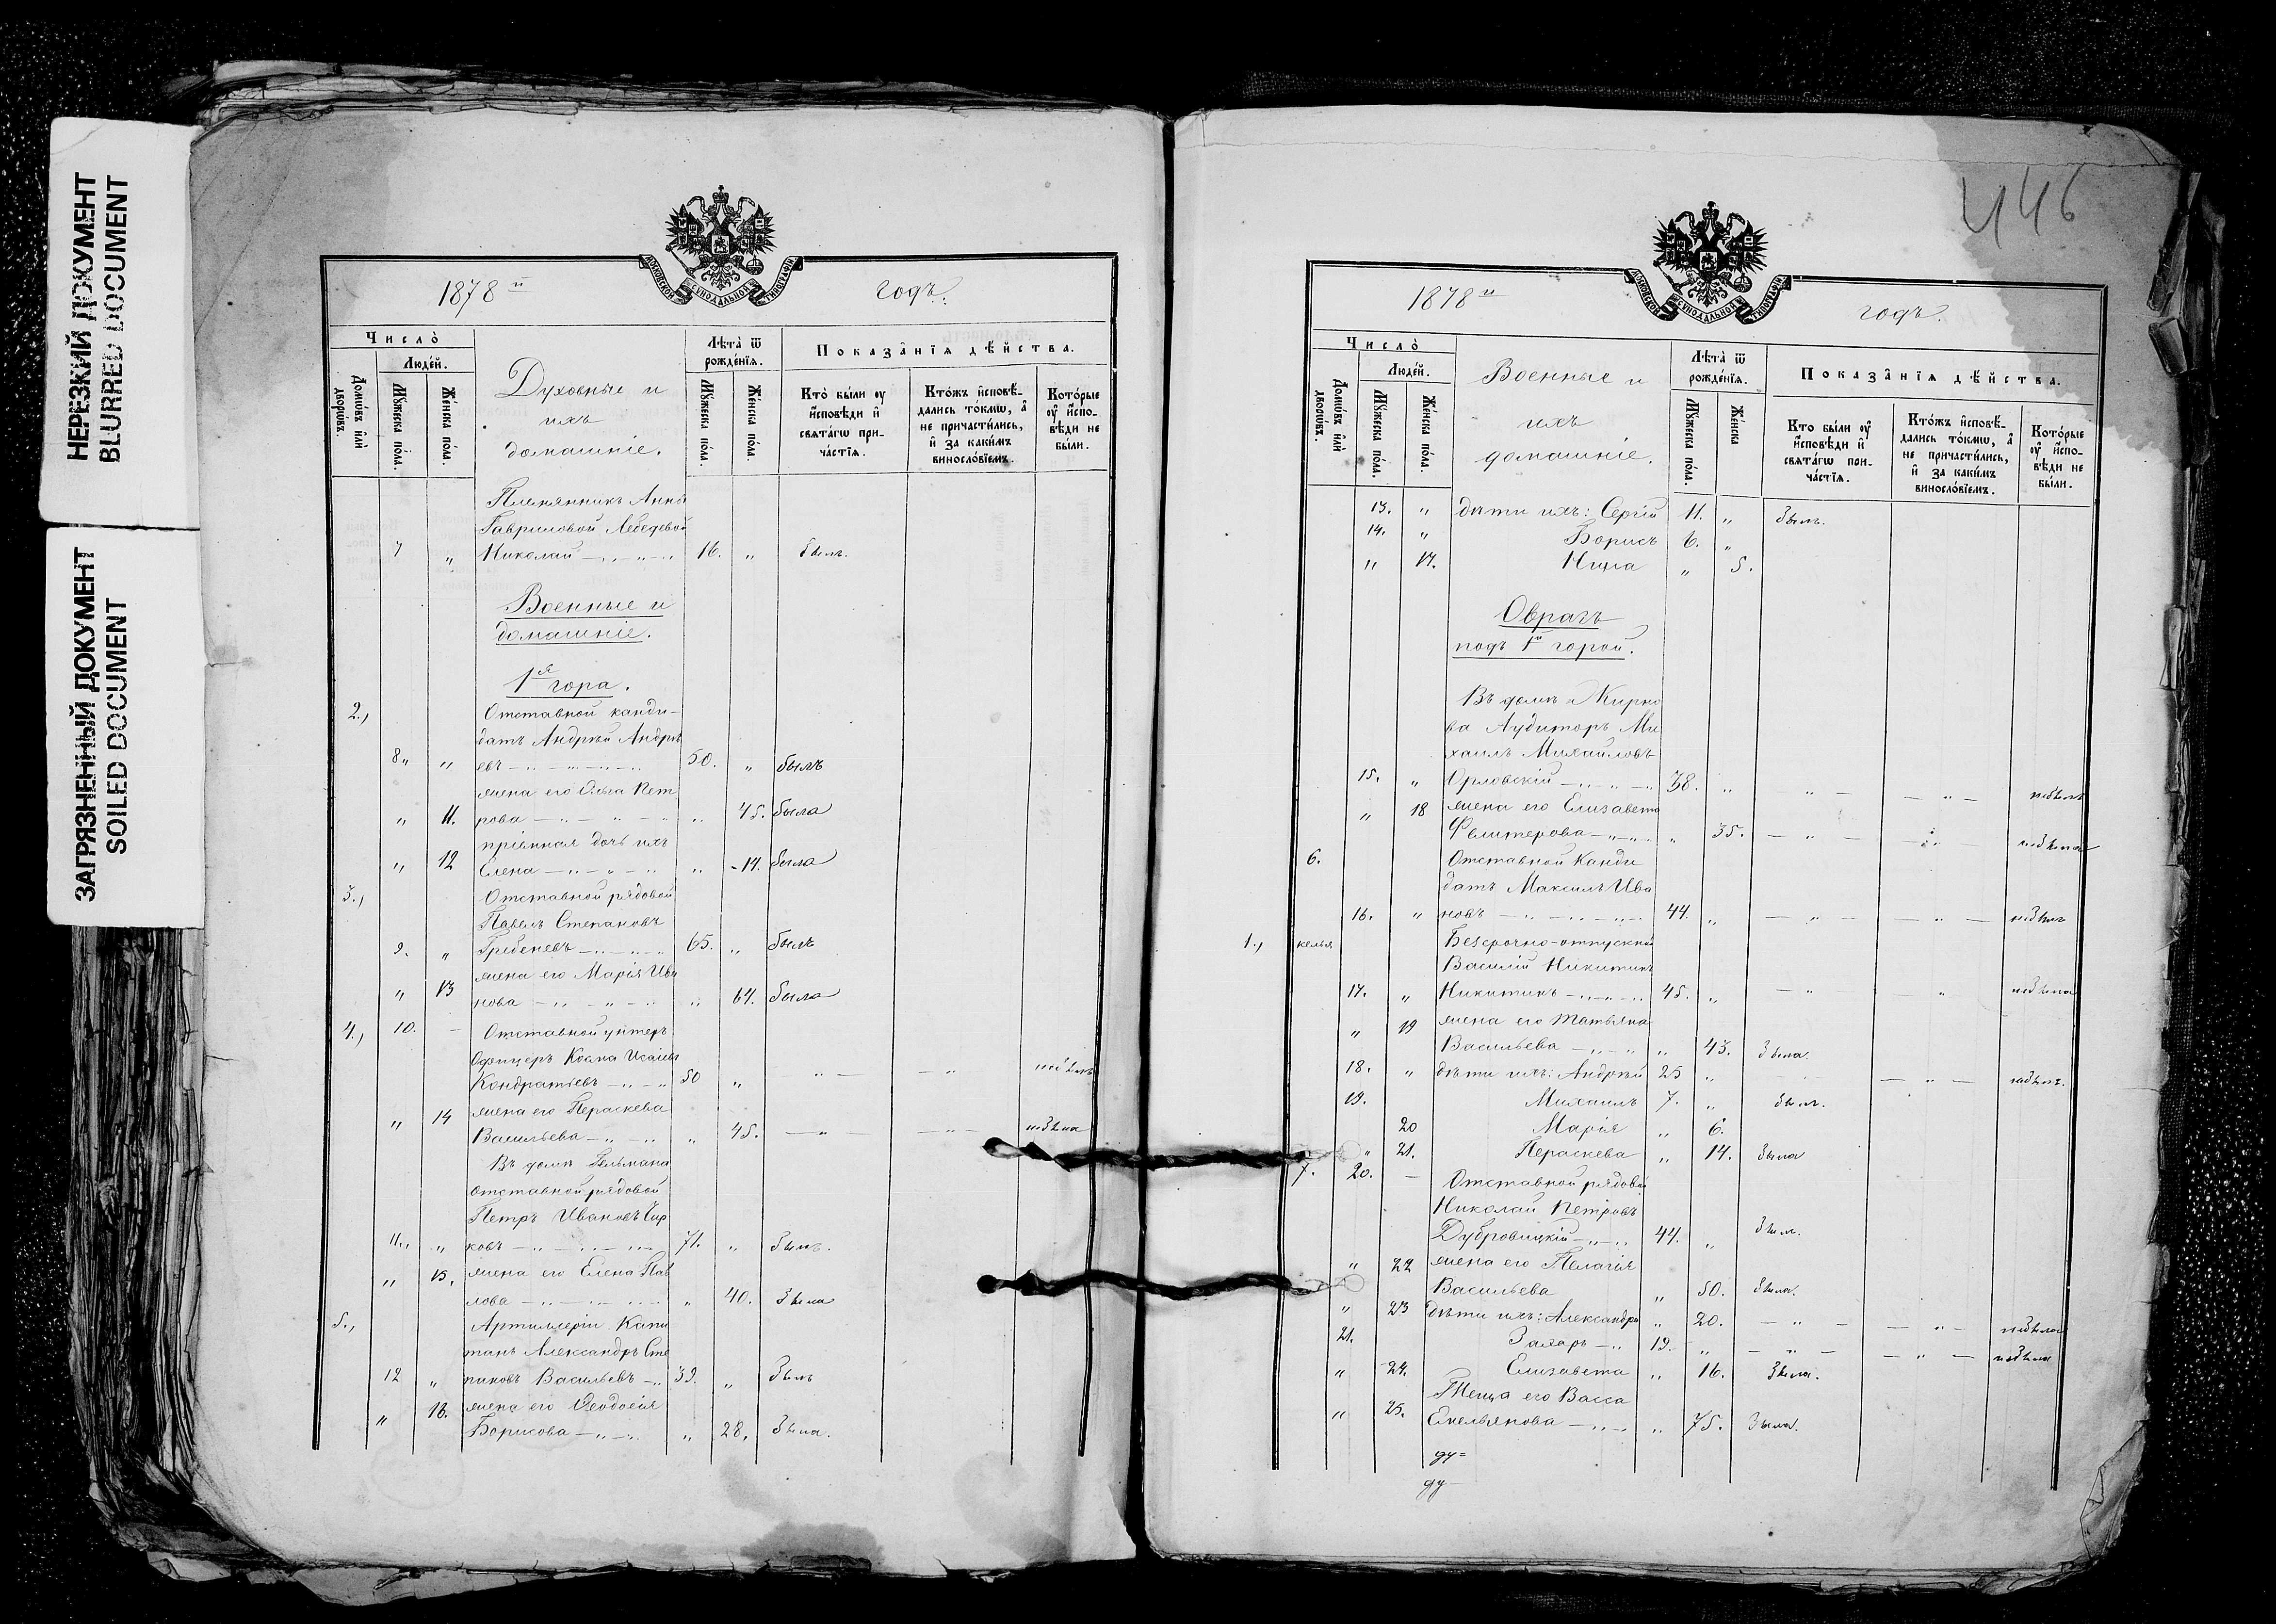 НЕРЕЗКИЙ ДОКУМЕНТ
BLURRED DOCUMENT
ЗАГРЯЗНЕННЫЙ ДОКУМЕНТ
SOILED DOCUMENT
МОСКОВСКОЙ СѴНОДАЛЬНОЙ ТИПОГРАФІИ
1878й годъ.
Число̀
Люде́й.
Домѡ́въ и҆лѝ дворѡ́въ.
Мꙋ́жеска по́ла.
Же́нска по́ла.
Духовные и
ихъ
домашніе.
Лѣ́та ѿ рожде́нїѧ.
Мꙋ́жеска по́ла.
Же́нска по́ла.
Показа̑нїѧ дѣ́йства.
Кто̀ бы́ли ᲂу҆ и҆сповѣ́ди и҆ свѧта́гѡ прича́стїѧ.
Кто́жъ и҆сповѣ́дались то́кмѡ, а҆ не причасти́лись, и҆ за каки́мъ винослове́емъ.
Кото́рые ᲂу҆ и҆сповѣ́ди не бы́ли.
Племянникъ Анны
Гавриловой Лебедевой
7 „ Николай — „ — „ — 16. „ былъ.
Военные и
домашніе.
1я гора.
2., Отставной канди-
датъ Андрей Андре
8„ „ евъ — „ — „ — 50. „ былъ
жена его Ольга Пет
„ 11. рова — „ — „ — „ 45. была
пріемная дочь ихъ
„ 12 Елена — „ — „ — „ 14. была
3., Отставной рядовой
Павелъ Степановъ
9. „ Гребеневъ — „ — „ 65. „ былъ
жена его Марія Ива
„ 13 нова — „ — „ — „ 64. была
4., 10. — Отставной унтеръ
Офицеръ Косма Исаіевъ
Кондратьевъ — „ — „ 50 „ — „ — — „ — небылъ
„ 14 жена его Параскева
Васильева — „ — „ „ 45. — „ — — „ — небыла
Въ домѣ Гельмана
отставной рядовой
Петръ Ивановъ Чир
11., „ ковъ — „ — „ — 71. „ былъ.
„ 15. жена его Елена Пав
лова — „ — „ — „ 40. была
5., Артиллеріи Капи
танъ Александръ Сте
12 „ пановъ Васильевъ — „ 39. „ былъ
„ 16. жена его Ѳеодосія
Борисова — „ — „ „ 28. была.
446
МОСКОВСКОЙ СѴНОДАЛЬНОЙ ТИПОГРАФІИ
1878й годъ.
Число̀
Люде́й.
Домѡ́въ и҆лѝ дворѡ́въ.
Мꙋ́жеска по́ла.
Же́нска по́ла.
Военные и
ихъ
домашніе.
Лѣ́та ѿ рожде́нїѧ.
Мꙋ́жеска по́ла.
Же́нска
Показа̑нїѧ дѣ́йства.
Кто бы́ли ᲂу҆ и҆сповѣ́ди и҆ свѧта́гѡ прича́стїѧ.
Кто́жъ и҆сповѣ́дались то́кмѡ, а҆ не причасти́лись, и҆ за каки́мъ винослове́емъ.
Кото́рые ᲂу҆ и҆сповѣ́ди не бы́ли.
13. „ дѣти ихъ: Сергій 11. „ былъ.
14. „ Борисъ 6. „
„ 17. Нина „ 5.
Оврагъ
подъ 1й горой.
Въ домѣ Жирно
ва Аудиторъ Ми
хаилъ Михайловъ
15. „ Орловскій — „ — „ 38. „ „ — — „ — небылъ
„ 18 жена его Елизавета
— „ — „ „ 35. — „ — — „ — небыла
6. Отставной Канди
датъ Максимъ Ива
16. „ новъ — „ — „ — „ 44. „ — „ — — „ — небылъ
1., келья Безсрочно-отпускной
Василій Никитинъ
17. „ Никитинъ — „ — „ 45. „ — „ „ небыла
„ 19 жена его Татьяна
Васильева — „ — „ „ 43. была.
18. „ дѣти ихъ: Андрей 25 „ — „ — небылъ.
19. Михаилъ 7. „ былъ.
20 Марія „ 6.
„ 21. Параскева „ 14. была
7. 20. — Отставной рядовой
Николай Петровъ
Дубровицкій — „ — „ 44. „ былъ.
„ 22 жена его Пелагія
Васильева „ 50. была.
„ 23 дѣти ихъ: Александра „ 20. — „ — — „ — небыла
21. Захаръ — „ 19. „ — „ — — „ — небыла
„ 24. Елизавета „ 16. была.
Теща его Васса
„ 25. Емельянова — „ — „ „ 75. была.
ду=
ду—